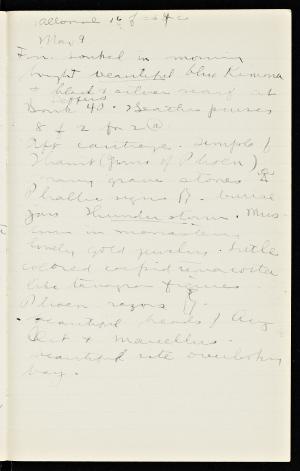 16 of
May 9
Fri. in morning
bought beautiful blue Kimona
+ black + silver scarf at
40. 2 Leather purses
8 + 2 for 2
Aft Carthage. Temple of
Thanit (Gums of Phoen)
many grave stones.
Phallic signs. burial
jars Thunder storm. Mus-
eum in monastery
lovely gold jewelry. Little
colored terracotta
like tanagra figures
Phoen razors
beautiful heads of Aug
+ Marcellus.
beautiful site overlooking
bay.